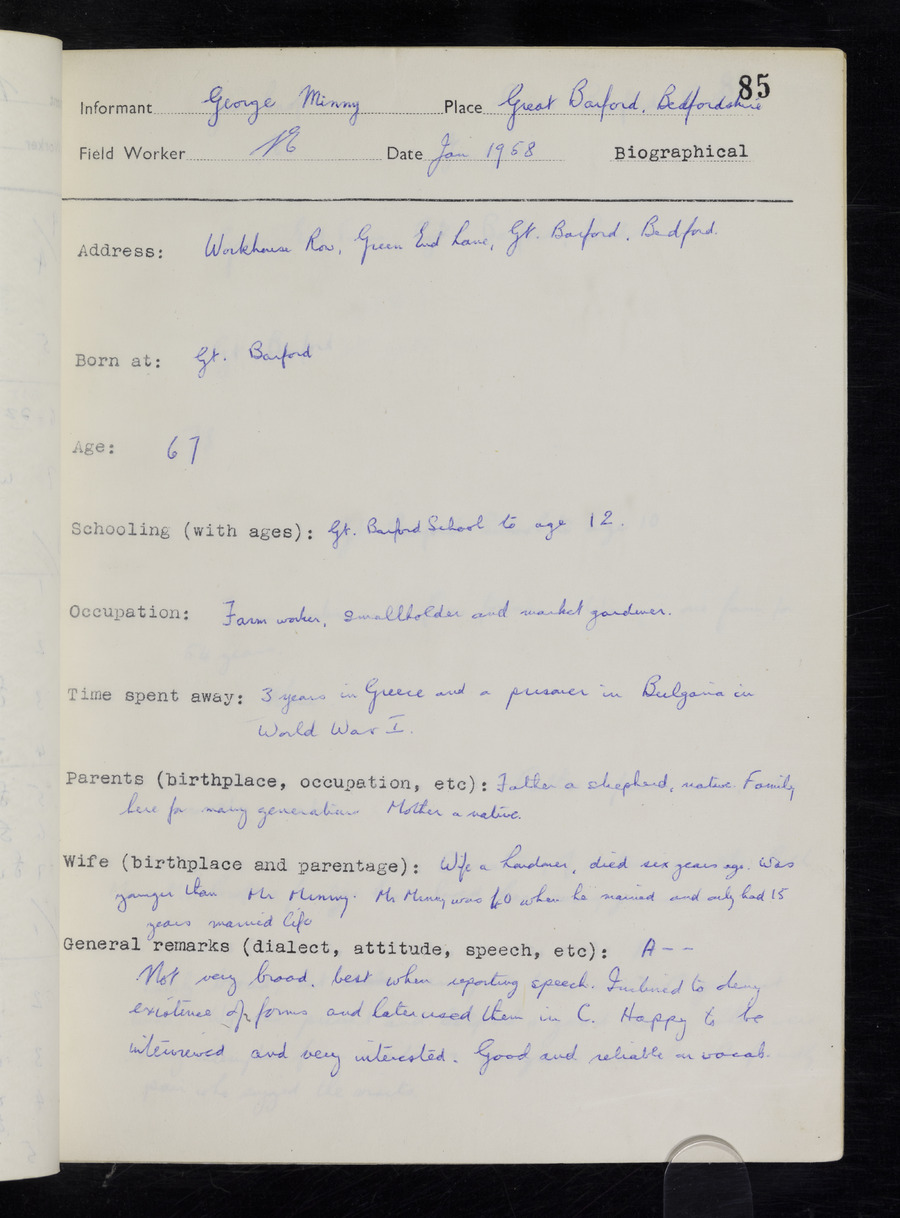 85
Informant George Minny Place Great Barford, Bedfordshire
Field Worker NE Date Jan 1958 Biographical
Address: Workhouse Row, Green End Lane, Gt. Barford, Bedford.
Born at: Gt. Barford
Age: 67
Schooling (with ages): Gt. Barford School to age 12.
Occupation: Farm worker, smallholder and market gardener.
Time spent away: 3 years in Greece and a prisoner in Bulgaria in
World War I.
Parents (birthplace, occupation, etc): Father a shepherd, native. Family
here for many generations Mother a native.
Wife (birthplace and parentage): Wife a Londoner, died six years ago. Was
younger than Mr Minny. Mr Minny was 40 when he married and only had 15
years married life
General remarks (dialect, attitude, speech, etc): A--
Not very broad, best when reporting speech. Inclined to deny
existence of forms and later used them in C. Happy to be
interviewed and very interested. Good and reliable on vocab.